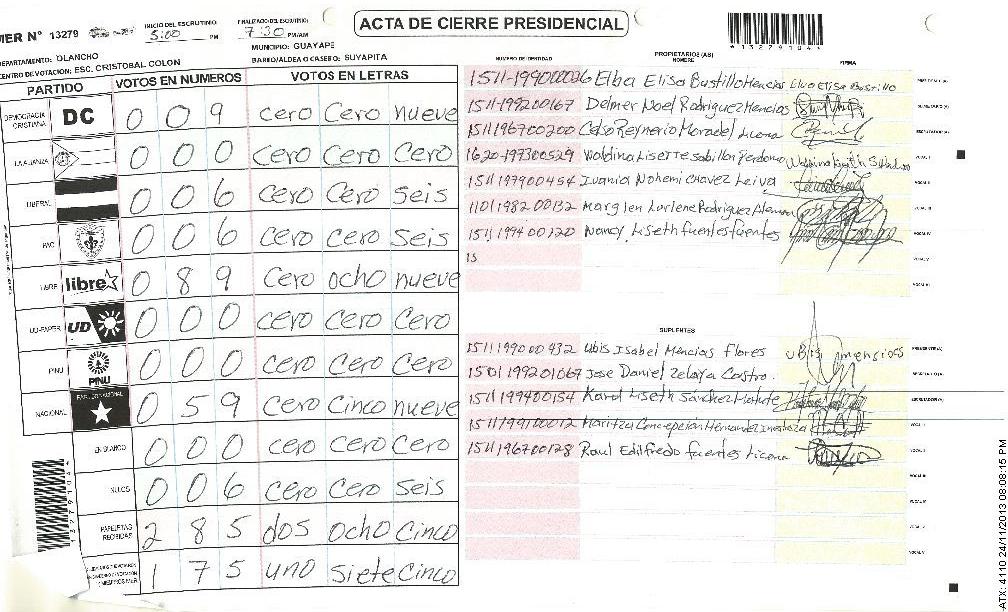 ACTA DE CIERRE PRESIDENCIAL
MER N° 13279
INICIO DEL ESCRUTINIO 5:00 PM
FINALIZO DEL ESCRUTINIO: 7:30 PM/AM
DEPARTAMENTO: OLANCHO
MUNICIPIO: GUAYAPE
CENTRO DE VOTACIÓN: ESC. CRISTOBAL COLON
BARRIO/ALDEA O CASERIO: SUYAPITA
1327910441
PARTIDO VOTOS EN NUMEROS VOTOS EN LETRAS
DEMOCRACIA CRISTIANA DC 0 0 9 cero cero nueve
LA ALIANZA 0 0 0 cero cero cero
LIBERAL 0 0 6 cero cero seis
PAC 0 0 6 cero cero seis
LIBRE libre 0 8 9 cero ocho nueve
UD-FAPER UD 0 0 0 cero cero cero
PINU PINU 0 0 0 cero cero cero
NACIONAL 0 5 9 cero cinco nueve
EN BLANCO 0 0 0 cero cero cero
NULOS 0 0 6 cero cero seis
PAPELETAS RECIBIDAS 2 8 5 dos ocho cinco
1 7 5 uno siete cinco
NUMERO DE IDENTIDAD PROPIETARIOS (AS) NOMBRE FIRMA
1511-199000026 Elba Elisa Bustillo Mencias Elba Elisa Bustillo PRESIDENTE (A)
1511-199200167 Delmer Noel Rodriguez Mencias SECRETARIO (A)
1511196700200 Celso Reynerio Moradel Licona ESCRUTADOR (A)
1620-197300529 Waldina Lisette Sabillon Perdomo VOCAL I
1511197900454 Ivania Nohemi Chavez Leiva VOCAL II
1101198200132 Marglen Lorlene Rodriguez VOCAL III
1511199400120 Nancy Liseth fuentes fuentes VOCAL IV
15 VOCAL V
VOCAL VI
SUPLENTES
1511199000432 Ubis Isabel Mencias Flores Ubis mensias PRESIDENTE (A)
1501199201067 Jose Daniel Zelaya Castro. SECRETARIO (A)
1511199400154 Karol Liseth Sánchez Matute ESCRUTADOR (A)
1511199100012 Maritza Concepcion Hernandez VOCAL I
1511196700128 Raul Edilfredo fuentes Licona VOCAL II
VOCAL III
VOCAL IV
VOCAL V
VOCAL VI
ATX: 4110 24/11/2013 08:08:15 PM